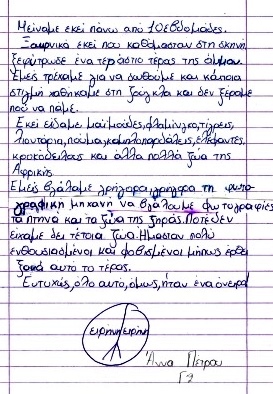 Μείναμε εκεί πάνω από 10 εβδομάδες.
Ξαφνικά εκεί που καθόμασταν στη σκηνή
ξεφύτρωσε ένα τεράστιο τέρας της άμμου.
Εμείς τρέξαμε για να σωθούμε και κάποια
στιγμή χαθήκαμε στη ζούγκλα και δεν ξέραμε
πού να πάμε.
Εκεί είδαμε μαϊμούδες, φλαμίνγκο, τίγρεις,
λιοντάρια, πούμα, καμηλοπαρδάλεις, ελέφαντες,
κροκόδειλους και άλλα πολλά ζώα της
Αφρικής.
Εμείς βγάλαμε γρήγορα, γρήγορα τη φωτο-
γραφική μηχανή να βγάλουμε φωτογραφίες
τα πτηνά και τα ζώα της ξηράς. Ποτέ δεν
είχαμε δει τέτοια ζώα. Ήμασταν πολύ
ενθουσιασμένοι και φοβισμένοι μήπως έρθει
ξανά αυτό το τέρας.
Ευτυχώς, όλο αυτό, όμως, ήταν ένα όνειρο!
ειρήνη ειρήνη
Άννα Πέτρου
Γ2